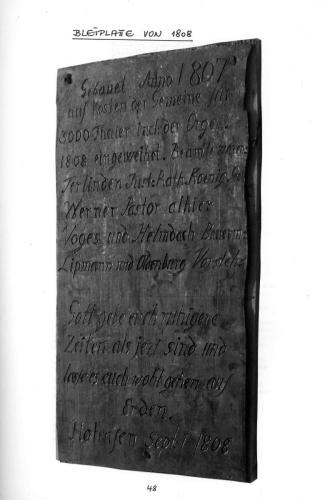 BLEIPLATTE VON 1808
Gebauet Anno 1807
auf Kosten der Gemeine für
3000 Thaler incl. der Orgel
1808 eingeweihet. Beamte waren
Terlinden Just: Rath. Koenig
Werner Pastor alhier
Voges und Helmdach Bauerm
Lipmann und Odenberg Vorsteh
Gott gebe euch ruhigere
Zeiten als jetz sind und
lasse es euch wohl gehen auf
Erden.
Hotensen Sept 1808
48